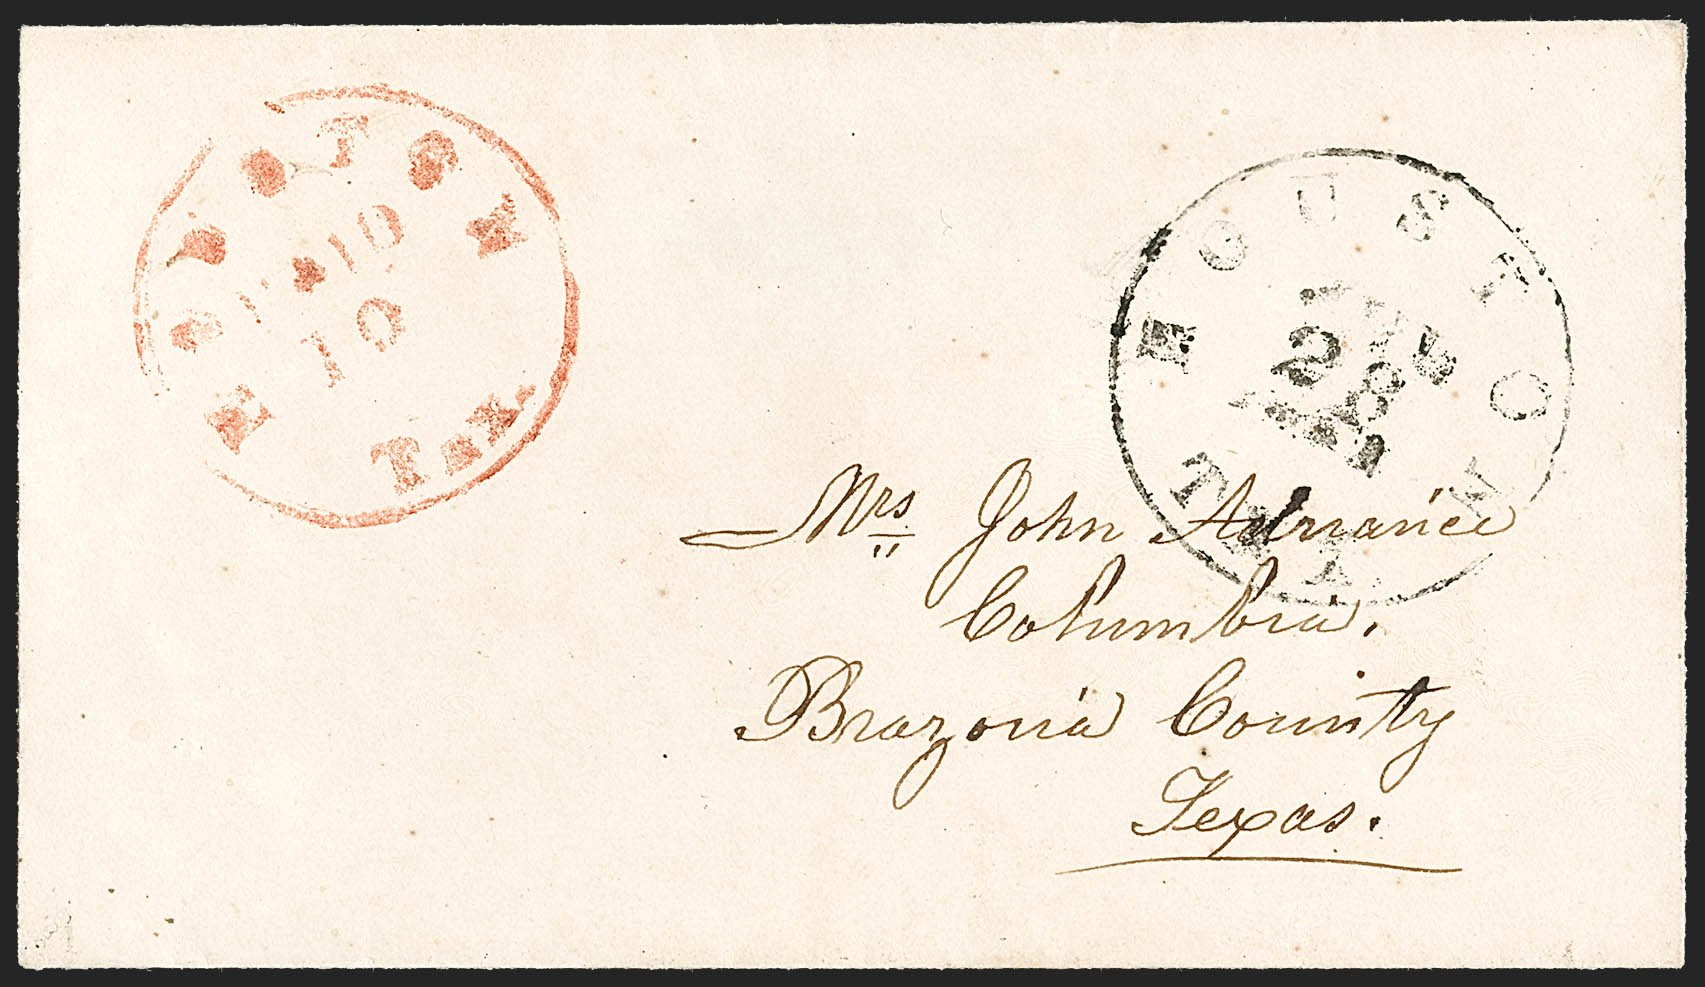 HOUSTON
PAID
10
Tex.
HOUSTON
28
TEX.
Mrs John Adriance
Columbia.
Brazoria County
Texas.